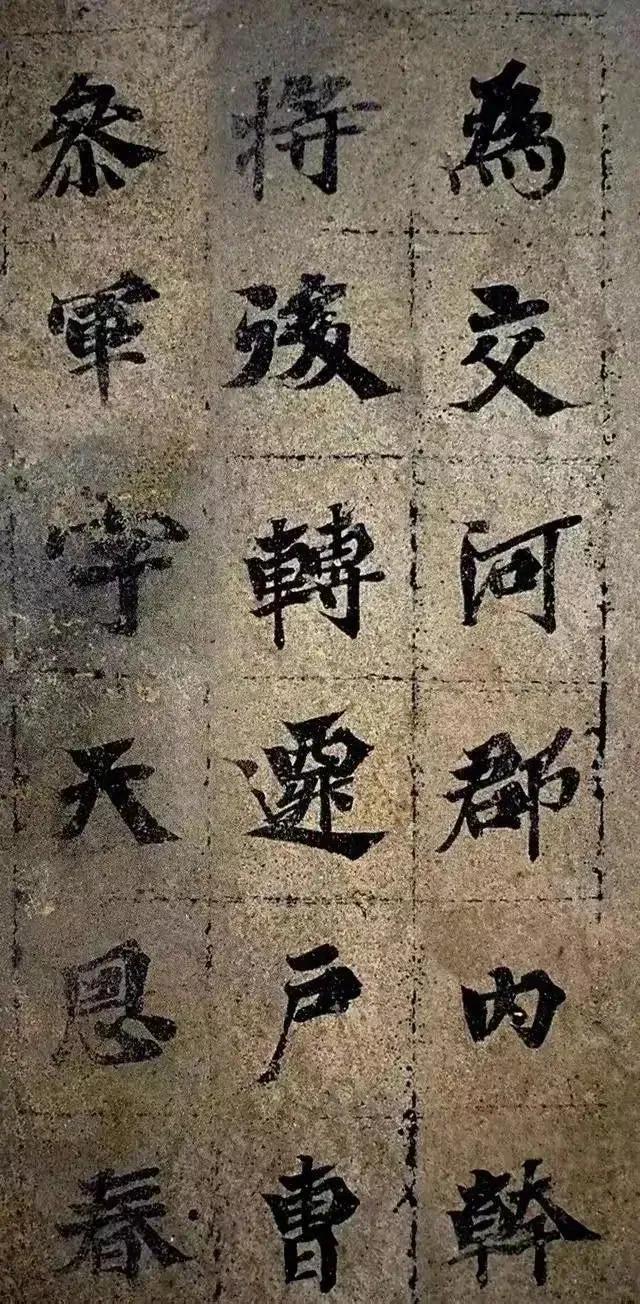 為交河郡內幹
將後轉遷戶曹
叅軍字天恩春